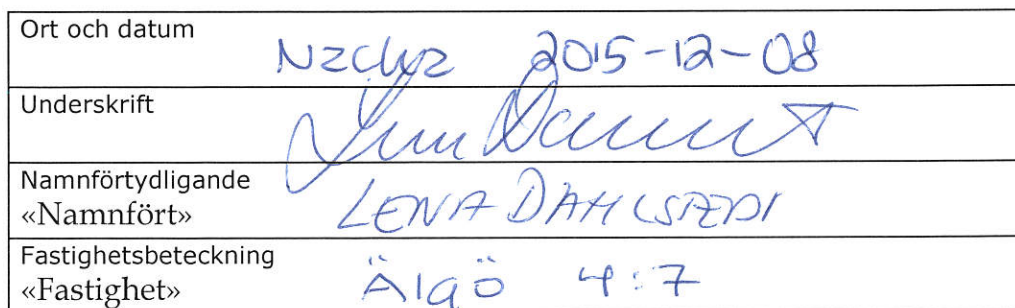 Ort och datum
Nacka 2015-12-08
Underskrift
Namnförtydligande
«Namnfört» LENA DAHLSTEDT
Fastighetsbeteckning
«Fastighet» Älgö 4:7